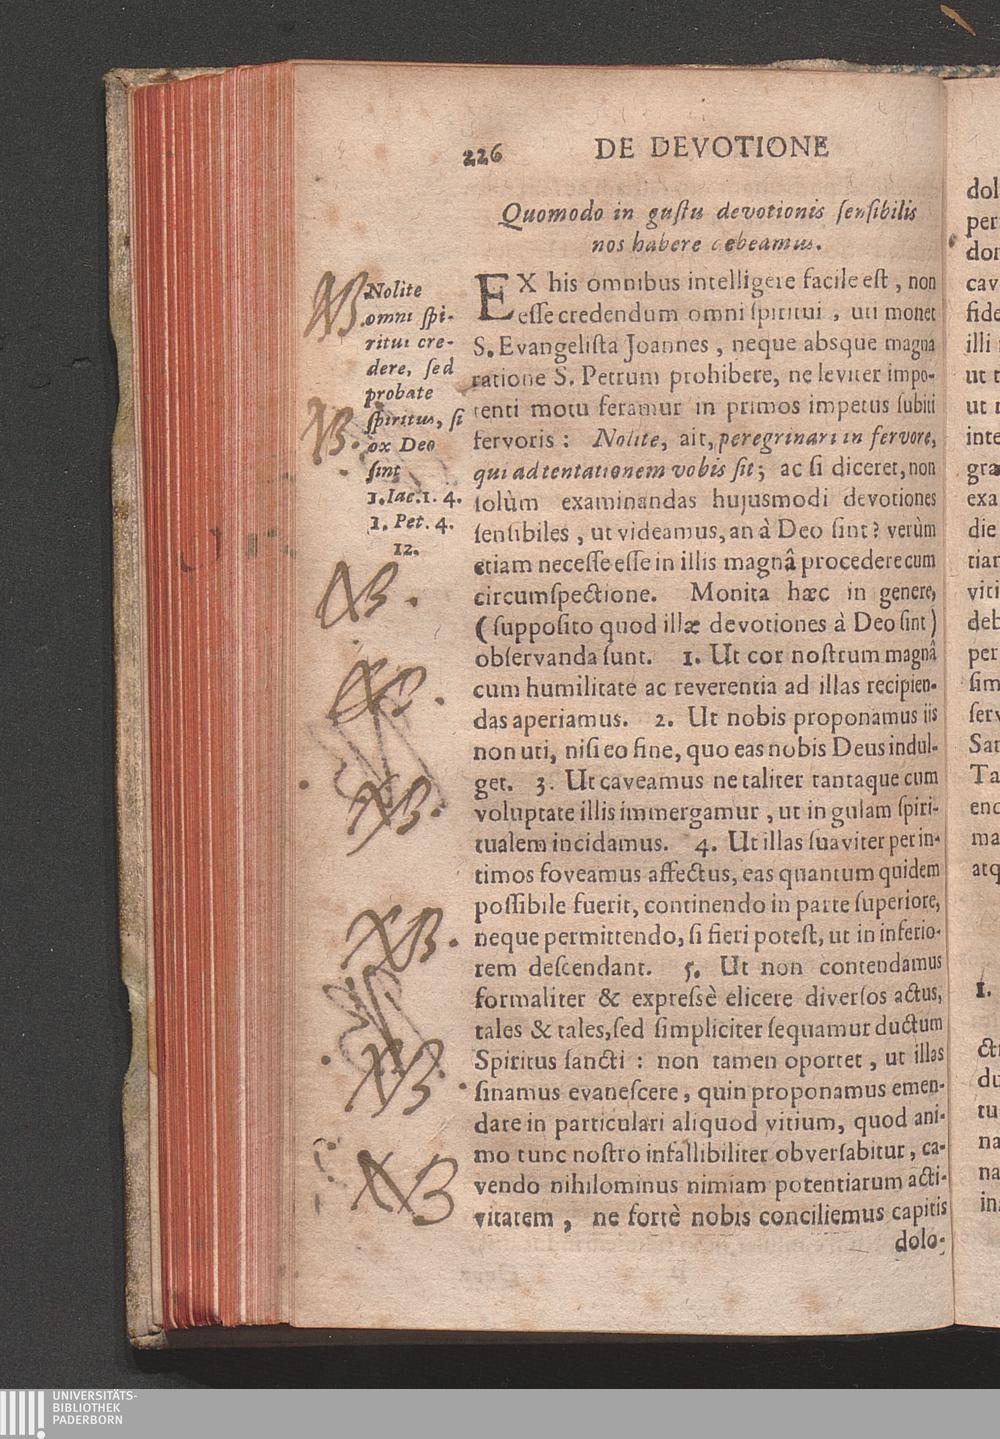 226 DE DEVOTIONE
Quomodo in guſtu devotionis ſenſibilis
nos habere debeamus.
Nolite
omni ſpi-
ritui cre-
dere, ſed
probate
ſpiritus, ſi
ex Deo
ſint
1. Iac. 1. 4.
1. Pet. 4.
12.
NB.
NB.
NB.
NB.
NB.
NB.
NB.
NB
EX his omnibus intelligere facile eſt, non
eſſe credendum omni ſpiritui, uti monet
S. Evangeliſta Joannes, neque absque magna
ratione S. Petrum prohibere, ne leviter impo-
tenti motu feramur in primos impetus ſubiti
fervoris: Nolite, ait, peregrinari in fervore,
qui ad tentationem vobis fit; ac ſi diceret, non
ſolùm examinandas hujusmodi devotiones
ſenſibiles, ut videamus, an à Deo ſint? verùm
etiam neceſſe eſſe in illis magnâ procedere cum
circumſpectione. Monita hæc in genere,
(ſuppoſito quod illæ devotiones à Deo ſint)
obſervanda ſunt. 1. Ut cor noſtrum magnâ
cum humilitate ac reverentia ad illas recipien-
das aperiamus. 2. Ut nobis proponamus iis
non uti, niſi eo fine, quo eas nobis Deus indul-
get. 3. Ut caveamus ne taliter tantaque cum
voluptate illis immergamur, ut in gulam ſpiri-
tualem incidamus. 4. Ut illas ſuaviter per in-
timos foveamus affectus, eas quantum quidem
poſſibile fuerit, continendo in parte ſuperiore,
neque permittendo, ſi fieri poteſt, ut in inferio-
rem deſcendant. 5. Ut non contendamus
formaliter & expreſsè elicere diverſos actus,
tales & tales, ſed ſimpliciter ſequamur ductum
Spiritus ſancti: non tamen oportet, ut illas
ſinamus evaneſcere, quin proponamus emen-
dare in particulari aliquod vitium, quod ani-
mo tunc noſtro infallibiliter obverſabitur, ca-
vendo nihilominus nimiam potentiarum acti-
vitatem, ne fortè nobis conciliemus capitis
dolo-
dol
per
don
cav
fide
illi
ut t
ut
inte
gra
exa
die
tian
viti
deb
per
ſim
ſerv
San
Ta
enc
ma
atq
1.
cti
du
tu
na
na
in
UNIVERSITÄTS-
BIBLIOTHEK
PADERBORN